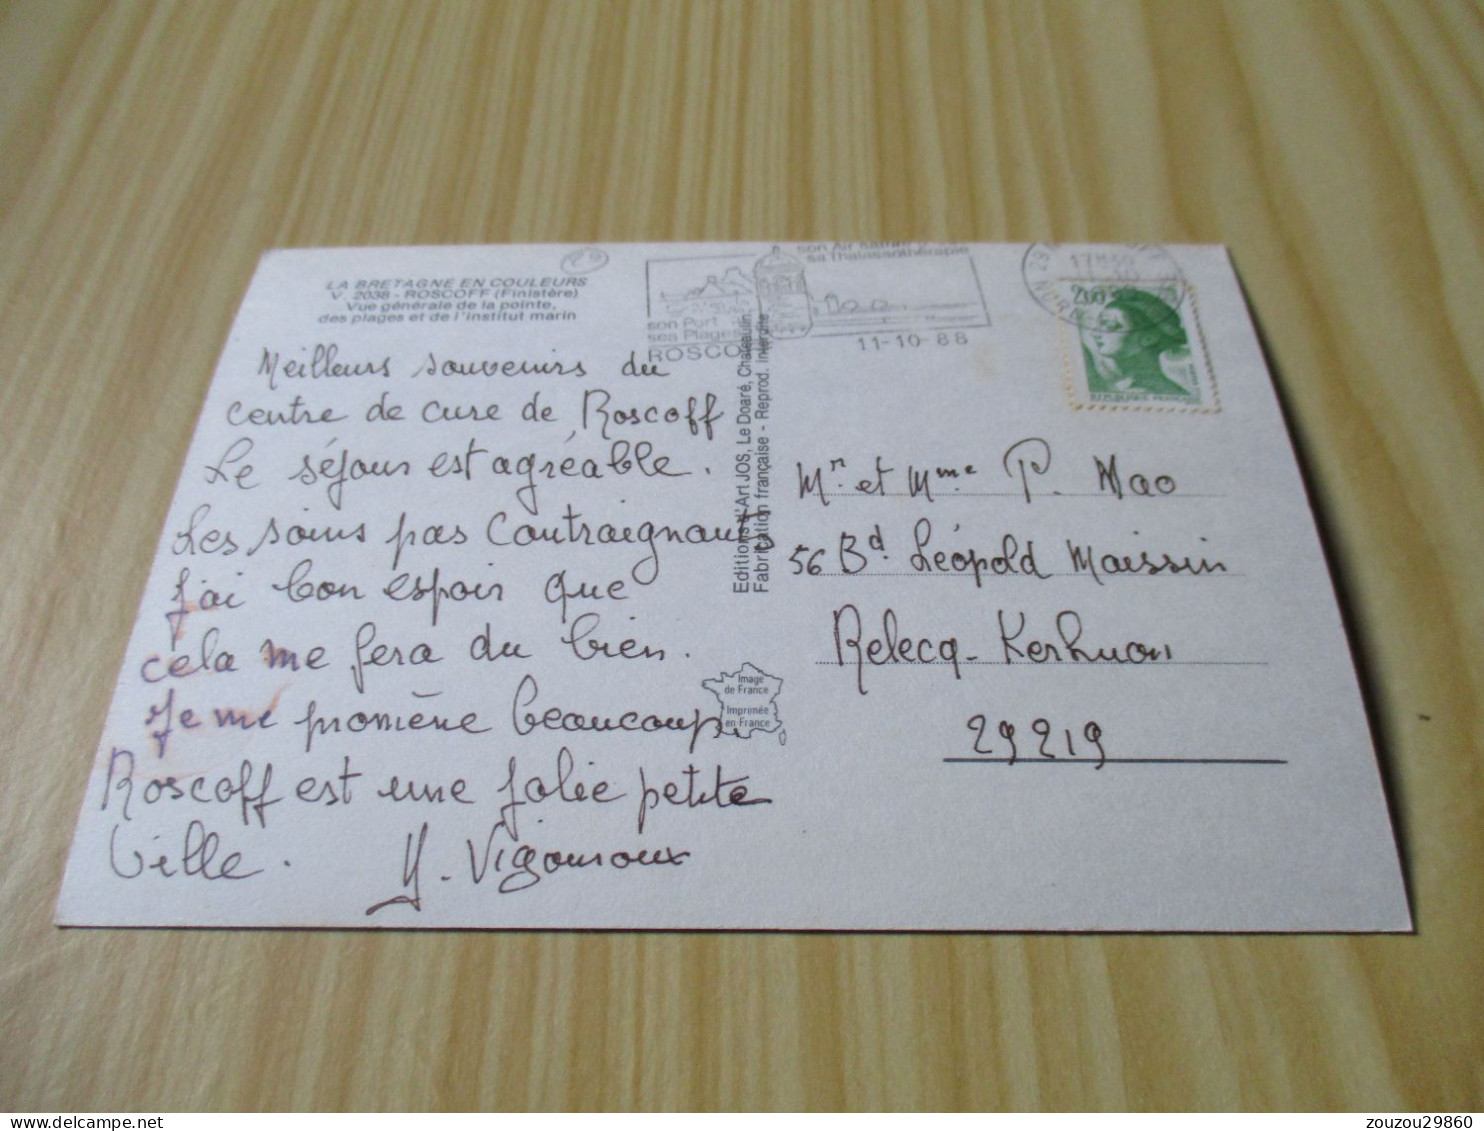 LA BRETAGNE EN COULEURS
V. 2038 - ROSCOFF (Finistère)
Vue générale de la pointe,
des plages et de l'institut marin
29
Meilleurs souvenirs du
centre de cure de Roscoff
Le séjour est agréable.
Les soins pas contraignants
J'ai bon espoir que
cela me fera du bien.
Je me promène beaucoup.
Roscoff est une jolie petite
ville. Y. Vigouroux
son Port
ses Plages
ROSCO
son Air
sa Thalassothérapie
11-10-88
Editions d'Art JOS, Le Doaré, Chateaulin.
Fabrication française - Reprod. interdite
Image
de France
Imprimée
en France
17H30
11-10
2,00
Mr. et Mme P. Mao
56 Bd. Léopold Maissin
Relecq-Kerhuon
29219
zouzou29860